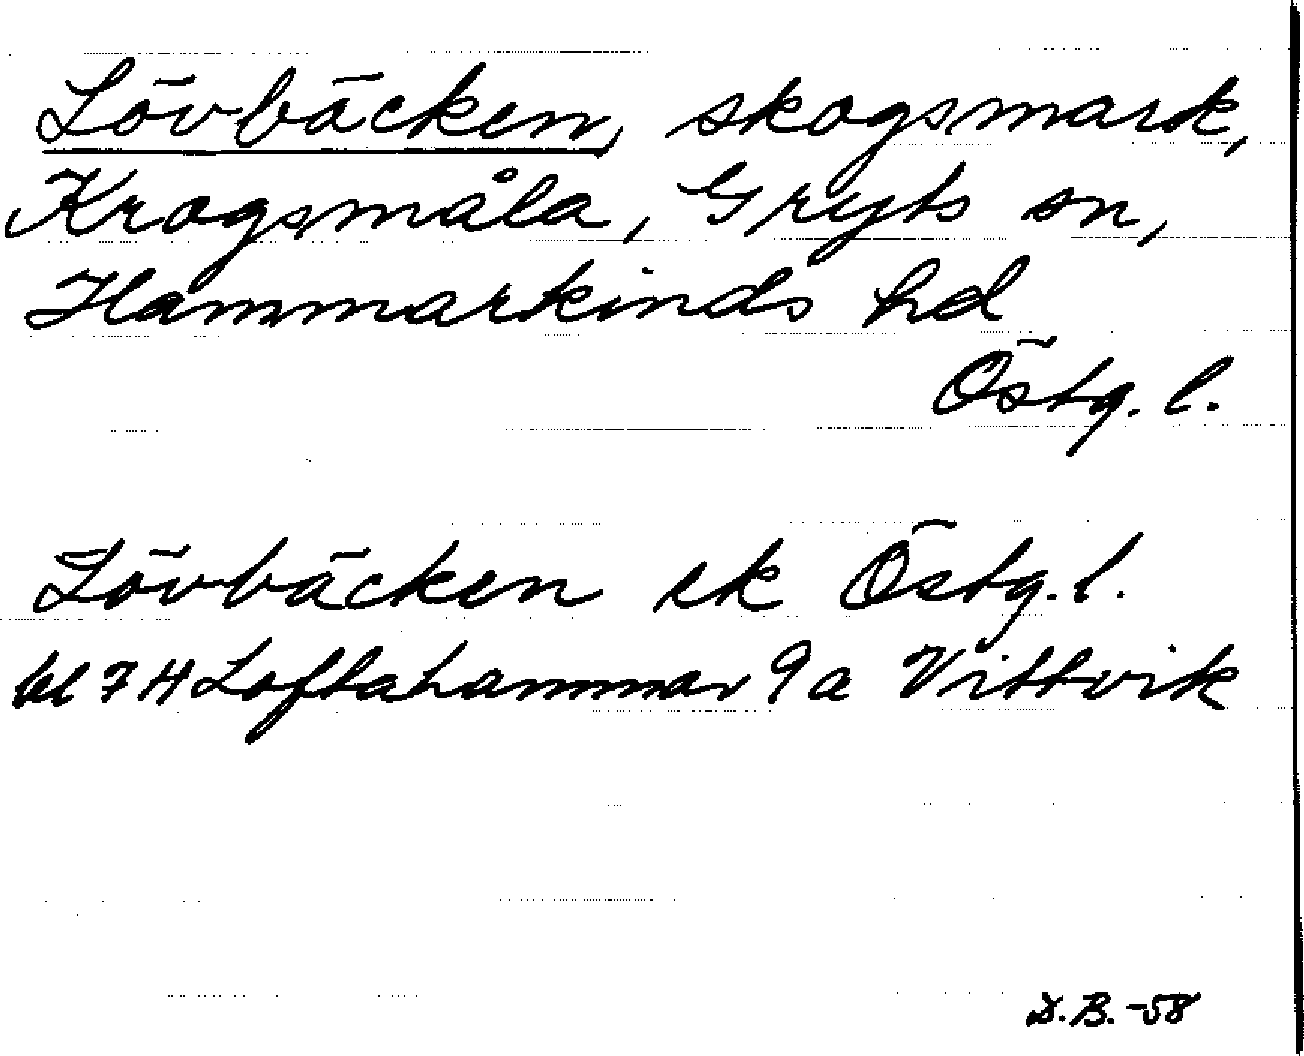 Lövbäcken, skogsmark,
Krogsmåla, Gryts sn,
Hammarkinds hd
Östg. l.
Lövbäcken ek Östg. l.
bl 7 H Loftahammar 9a Vittvik
D.B. -58